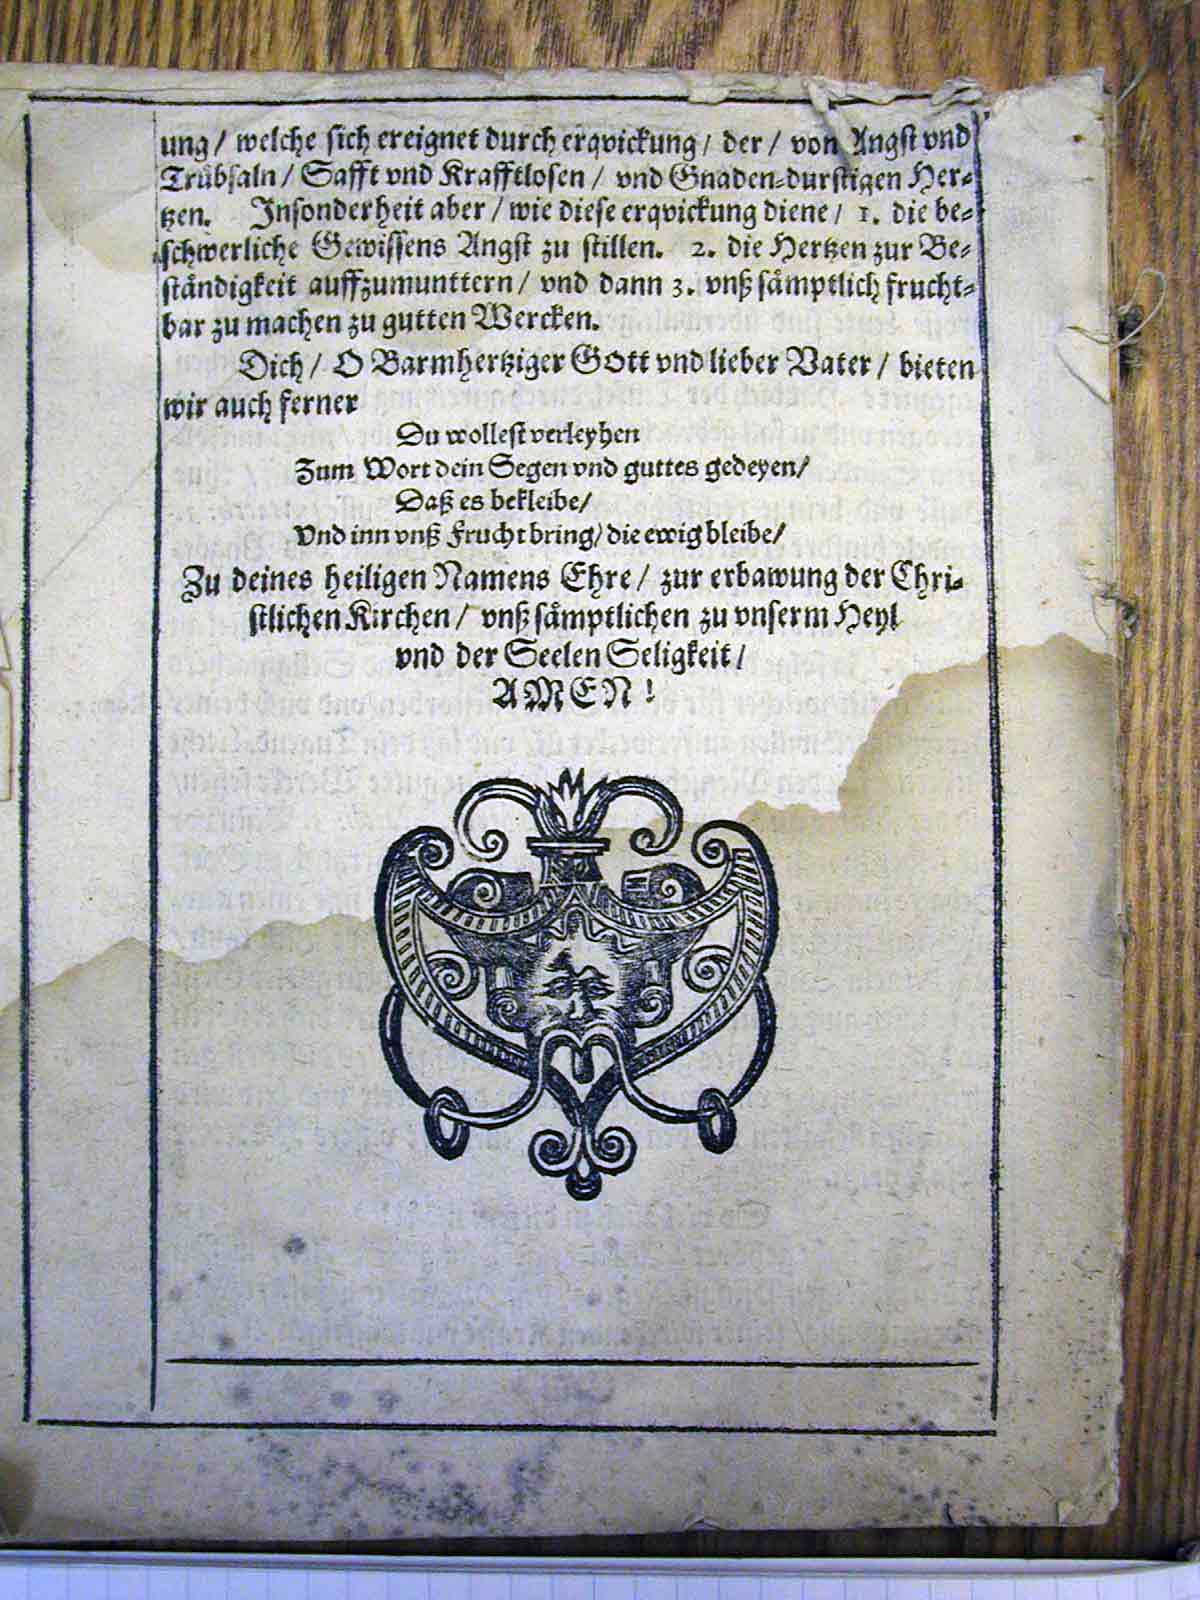 ung / welche sich ereignet durch erqvickung / der / von Angst vnd
Trůbsaln / Safft vnd Krafftlosen / vnd Gnaden-durstigen Her-
tzen. Insonderheit aber / wie diese erqvickung diene / 1. die be-
schwerliche Gewissens Angst zu stillen. 2. die Hertzen zur Be-
ståndigkeit auffzumunttern / vnd dann 3. vnß såmptlich frucht-
bar zu machen zu gutten Wercken.
Dich / O Barmhertziger GOtt vnd lieber Vater / bieten
wir auch ferner
Du wollest verleyhen
Zum Wort dein Segen vnd guttes gedeyen /
Daß es bekleibe /
Vnd inn vnß Frucht bring / die ewig bleibe /
Zu deines heiligen Namens Ehre / zur erbawung der Chri-
stlichen Kirchen / vnß såmptlichen zu vnserm Heyl
vnd der Seelen Seligkeit /
AMEN !